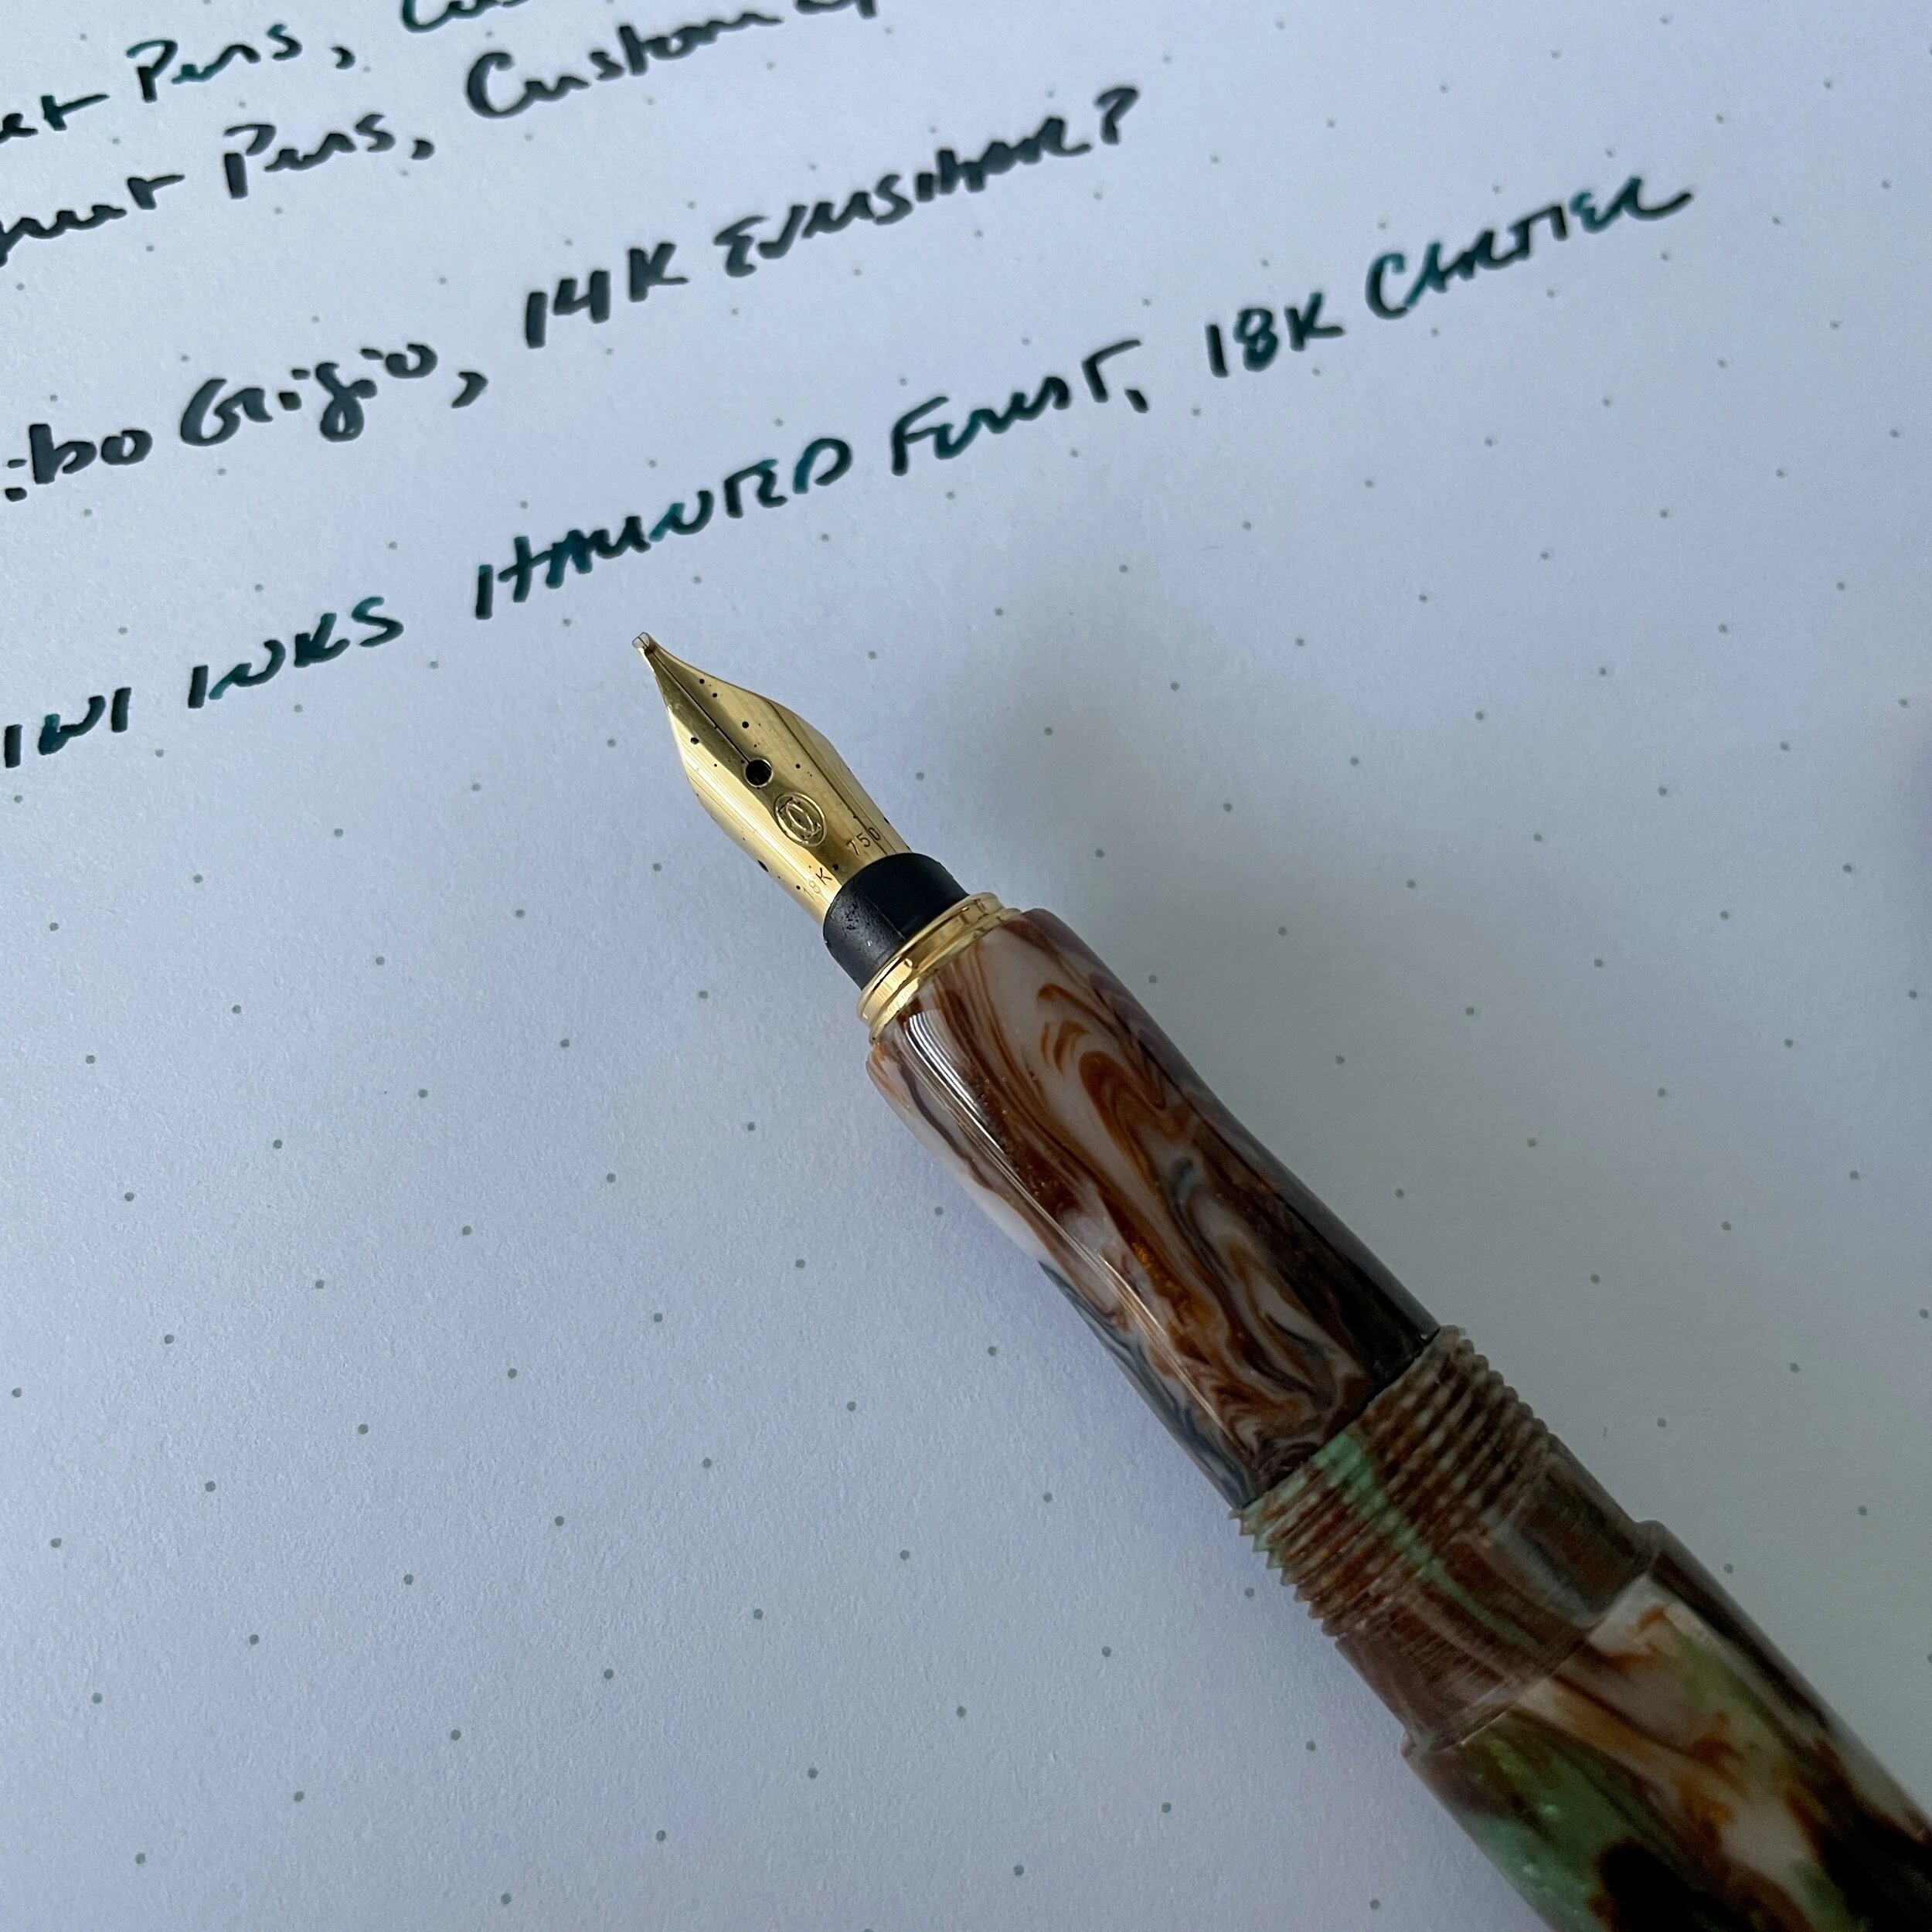 Pens,
Pens, Custom
Grigio, 14K EVERSHARP?
INKS HAUNTED FOREST, 18K CARTIER
18K 750